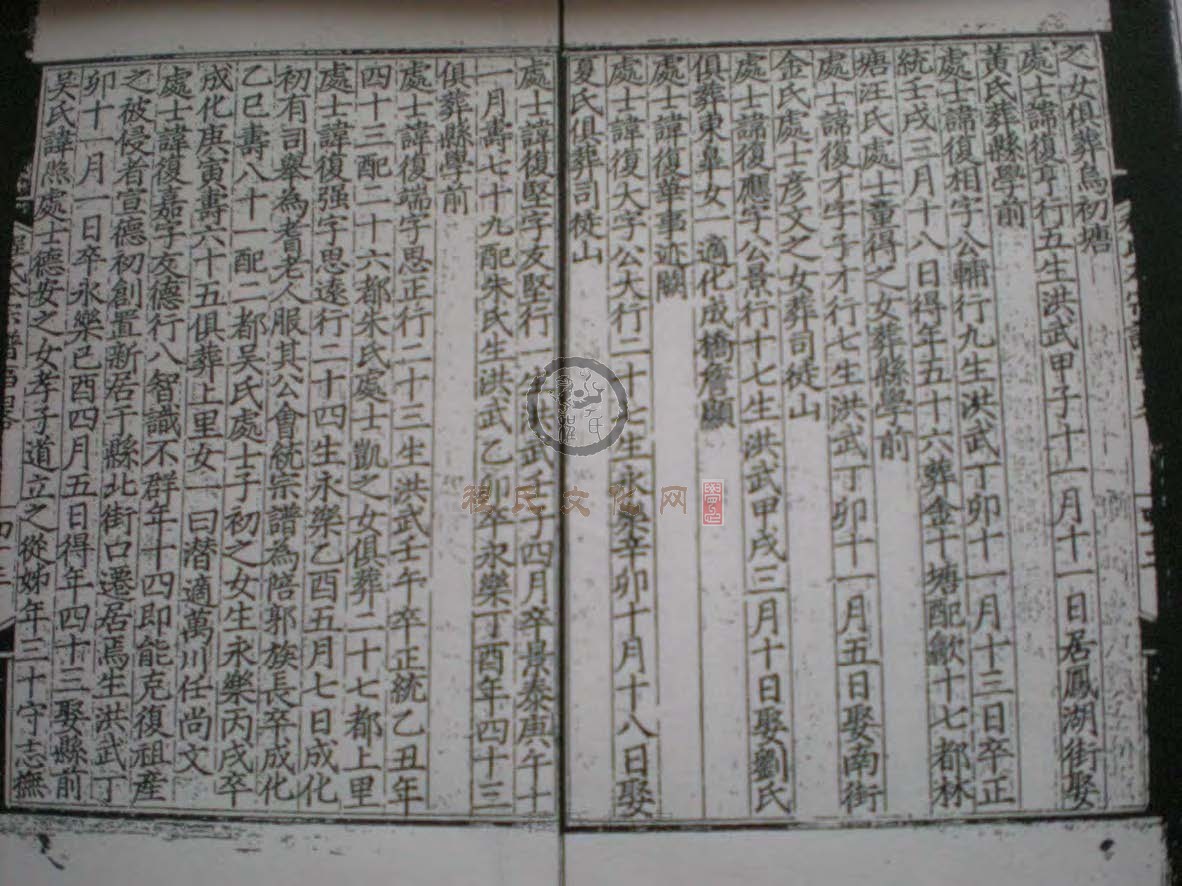 之女俱葬烏初塘
處士諱復亨行五生洪武甲子十一月十一日居鳳湖街娶
黃氏葬縣學前
處士諱復相字公輔行九生洪武丁卯十一月十三日卒正
統壬戌三月十八日得年五十六葬金干塘配歙十七都林
塘汪氏處士童得之女葬縣學前
處士諱復才字子才行七生洪武丁卯十一月五日娶南街
金氏處士彥文之女葬司徒山
處士諱復應字公景行十七生洪武甲戌三月十日娶劉氏
俱葬東阜女一適化成橋詹顯
處士諱復華事迹闕
處士諱復大字公大行二十七生永樂辛卯十月十八日娶
夏氏俱葬司徒山
處士諱復堅字友堅行一 武壬子四月卒景泰庚午十
一月壽七十九配朱氏生洪武乙卯卒永樂丁酉年四十三
俱葬縣學前
處士諱復端字思正行二十三生洪武壬午卒正統乙丑年
四十三配二十六都朱氏處士凱之女俱葬二十七都上里
處士諱復强字思遠行二十四生永樂乙酉五月七日成化
初有司舉為耆老人服其公會統宗譜為陪郭族長卒成化
乙巳壽八十一配二都吴氏處士子初之女生永樂丙戌卒
成化庚寅壽六十五俱葬上里女一曰潜適萬川任尚文
處士諱復嘉字友德行八智識不群年十四即能克復祖產
之被侵者宣德初創置新居于縣北街口遷居焉生洪武丁
卯十一月一日卒永樂己酉四月五日得年四十三娶縣前
吴氏諱 處士德安之女孝子道立之從姊年三十守志撫
移民文化网